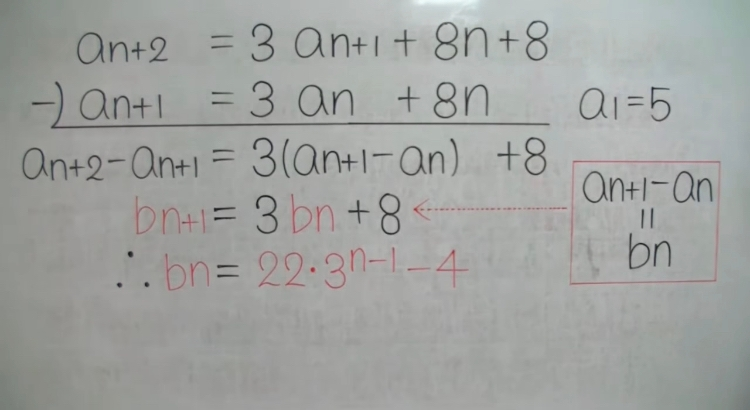 an+2 = 3 an+1 + 8n+8
−) an+1 = 3 an + 8n
a1=5
an+2−an+1 = 3(an+1−an) +8
bn+1 = 3bn+8
an+1−an
=
bn
∴ bn = 22・3n−1−4